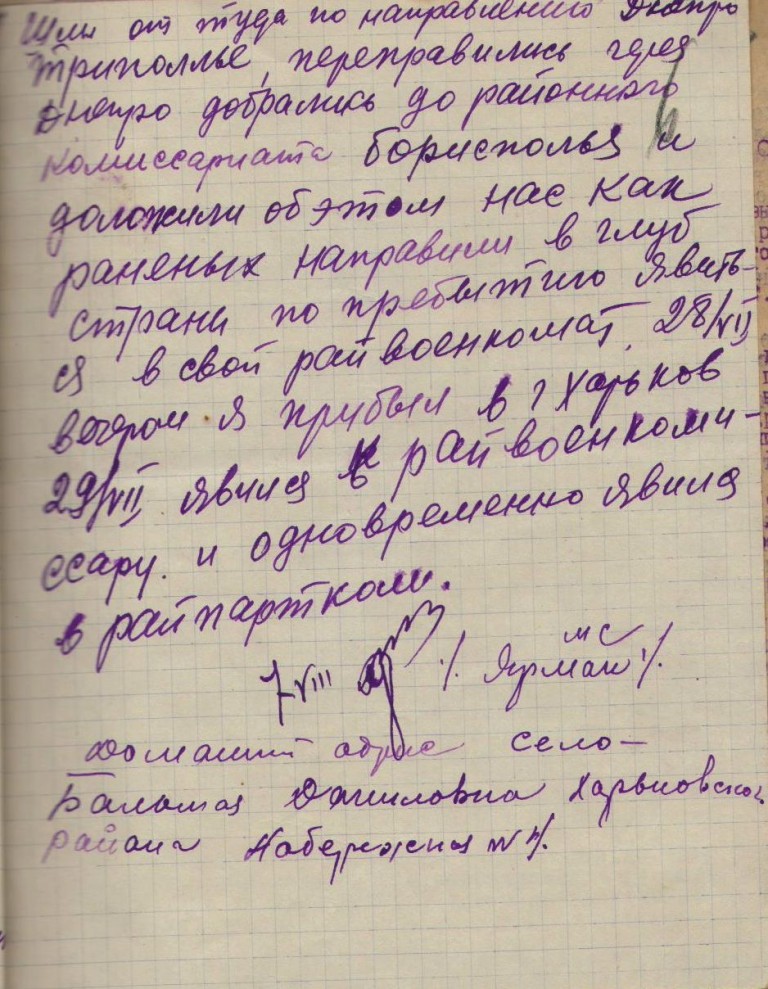 Шли от туда по направлению Днепро
Триполлье, переправились через
Днепро добрались до районного
комиссариата Борисполья и
доложили об этом нас как
раненых направили в глуб
страны по пребытию явить-
ся в свой райвоенкомат. 28/VII
вечером я прибыл в г Харьков
29/VII явился к райвоенкоми-
ссару. и одновременно явился
в райпартком.
7/VIII ./. Ярмак ./.
мс
Домашний адрис село-
Большая Даниловка Харьковского
района Набережная №